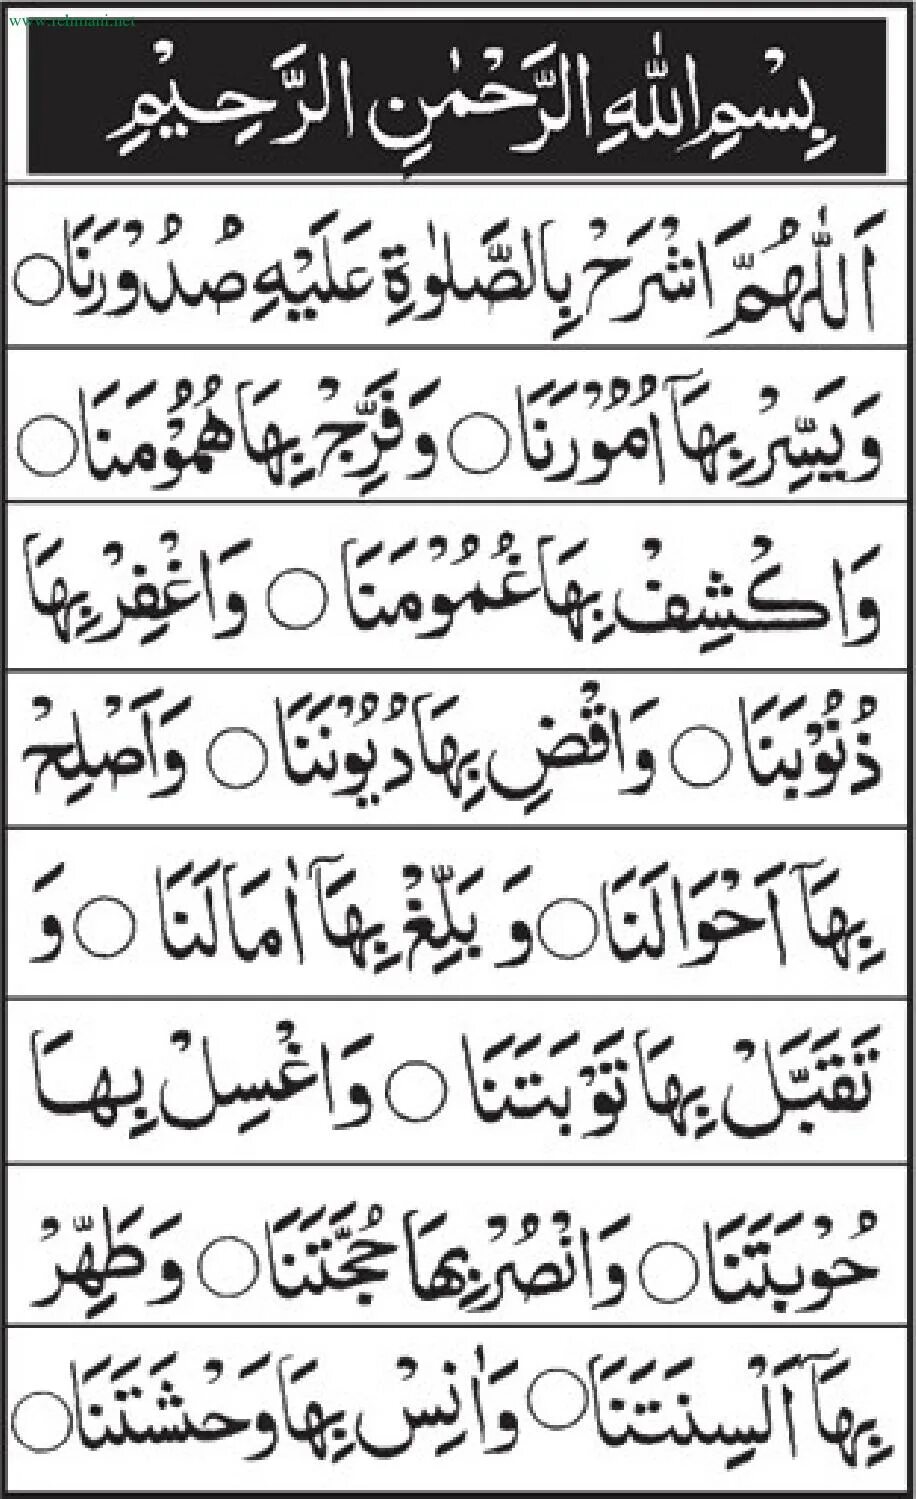 www.rehmani.net
بِسْمِ اللّٰهِ الرَّحْمٰنِ الرَّحِيْمِ
اَللّٰهُمَّ اشْرَحْ بِالصَّلٰوةِ عَلَيْهِ صُدُوْرَنَا ○
وَيَسِّرْ بِهَآ اُمُوْرَنَا ○ وَفَرِّجْ بِهَا هُمُوْمَنَا ○
وَاكْشِفْ بِهَا غُمُوْمَنَا ○ وَاغْفِرْ بِهَا
ذُنُوْبَنَا ○ وَاقْضِ بِهَا دُيُوْنَنَا ○ وَاَصْلِحْ
بِهَآ اَحْوَالَنَا ○ وَ بَلِّغْ بِهَآ اٰمَالَنَا ○ وَ
تَقَبَّلْ بِهَا تَوْبَتَنَا ○ وَاغْسِلْ بِهَا
حُوْبَتَنَا ○ وَانْصُرْ بِهَا حُجَّتَنَا ○ وَطَهِّرْ
بِهَآ اَلْسِنَتَنَا ○ وَاٰنِسْ بِهَا وَحْشَتَنَا ○